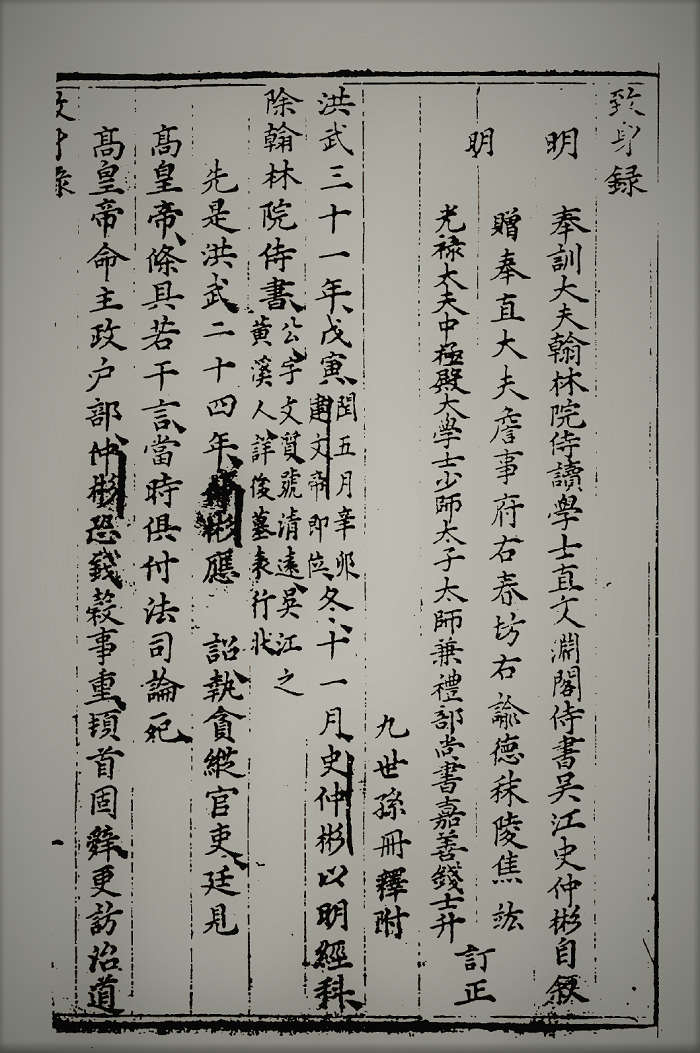 致身録
明
奉訓大夫翰林院侍讀學士直文淵閣侍書吴江史仲彬自叙
明
贈奉直大夫詹事府右春坊右諭德秣陵焦竑
光禄大夫中極殿大學士少師太子太師兼禮部尚書嘉善錢士升
訂正
九世孫冊釋附
洪武三十一年戊寅閏五月辛夘建文帝即位冬十一月史仲彬以明經科
除翰林院侍書公字文質號清遠吴江之黄溪人詳俊墓表行狀
先是洪武二十四年仲彬應 詔執貪縱官吏廷見
高皇帝條具若干言當時俱付法司論死
高皇帝命主政户部仲彬恐錢穀事重頓首固辤更訪治道
致身録